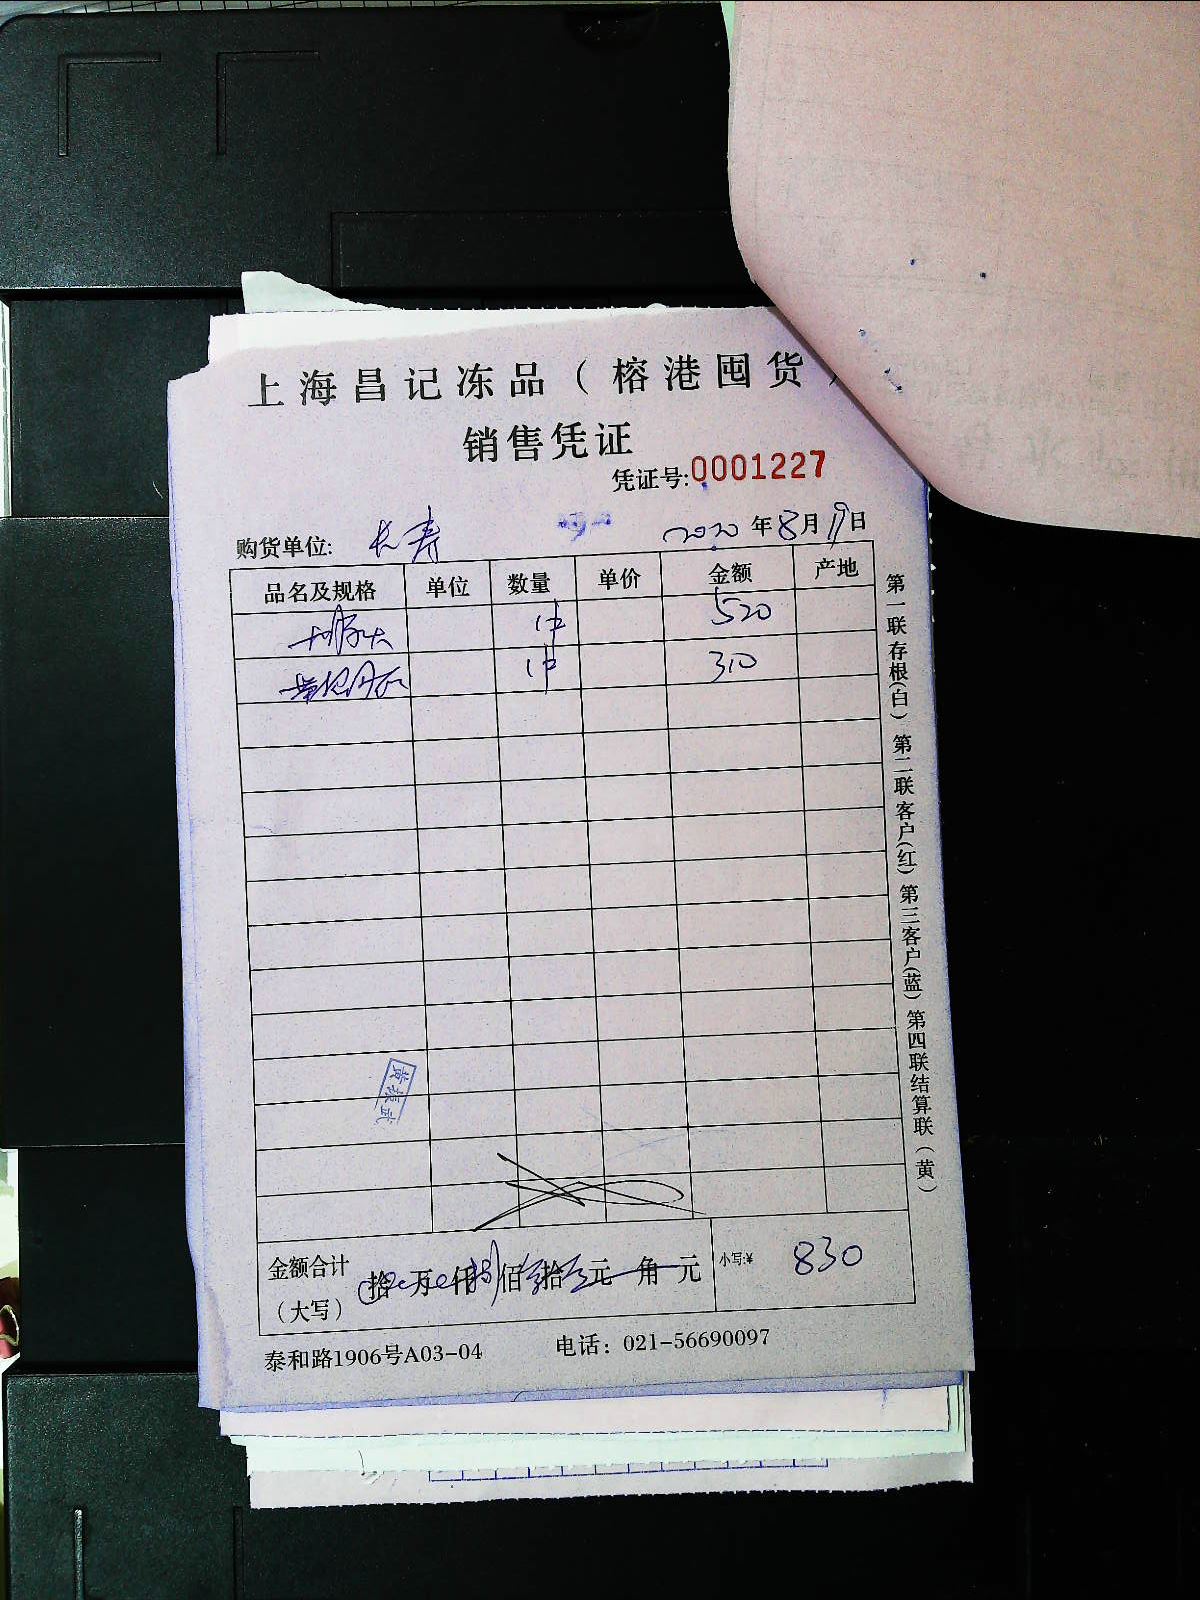 上海昌记冻品（榕港囤货）
销售凭证
凭证号:0001227
购货单位: 长寿 2020年8月19日
品名及规格 单位 数量 单价 金额 产地
1件 520
1件 310
金额合计 拾 万 仟 捌佰 叁拾 元 角 元 小写:¥ 830
（大写）
泰和路1906号A03-04 电话：021-56690097
第一联存根(白) 第二联客户(红) 第三客户(蓝) 第四联结算联（黄）
黄振武